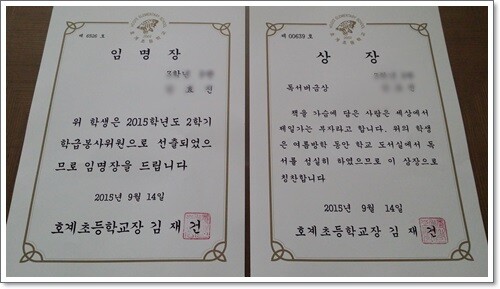 제 4526 호
임 명 장
3학년
효 린
위 학생은 2015학년도 2학기
학급봉사위원으로 선출되었으
므로 임명장을 드립니다
2015년 9월 14일
호계초등학교장 김 재 건
제 00639 호
상 장
독서배금상
책을 가슴에 담은 사람은 세상에서
제일가는 부자라고 합니다. 위의 학생
은 여름방학 동안 학교 도서실에서 독
서를 성실히 하였으므로 이 상장으로
칭찬합니다
2015년 9월 14일
호계초등학교장 김 재 건